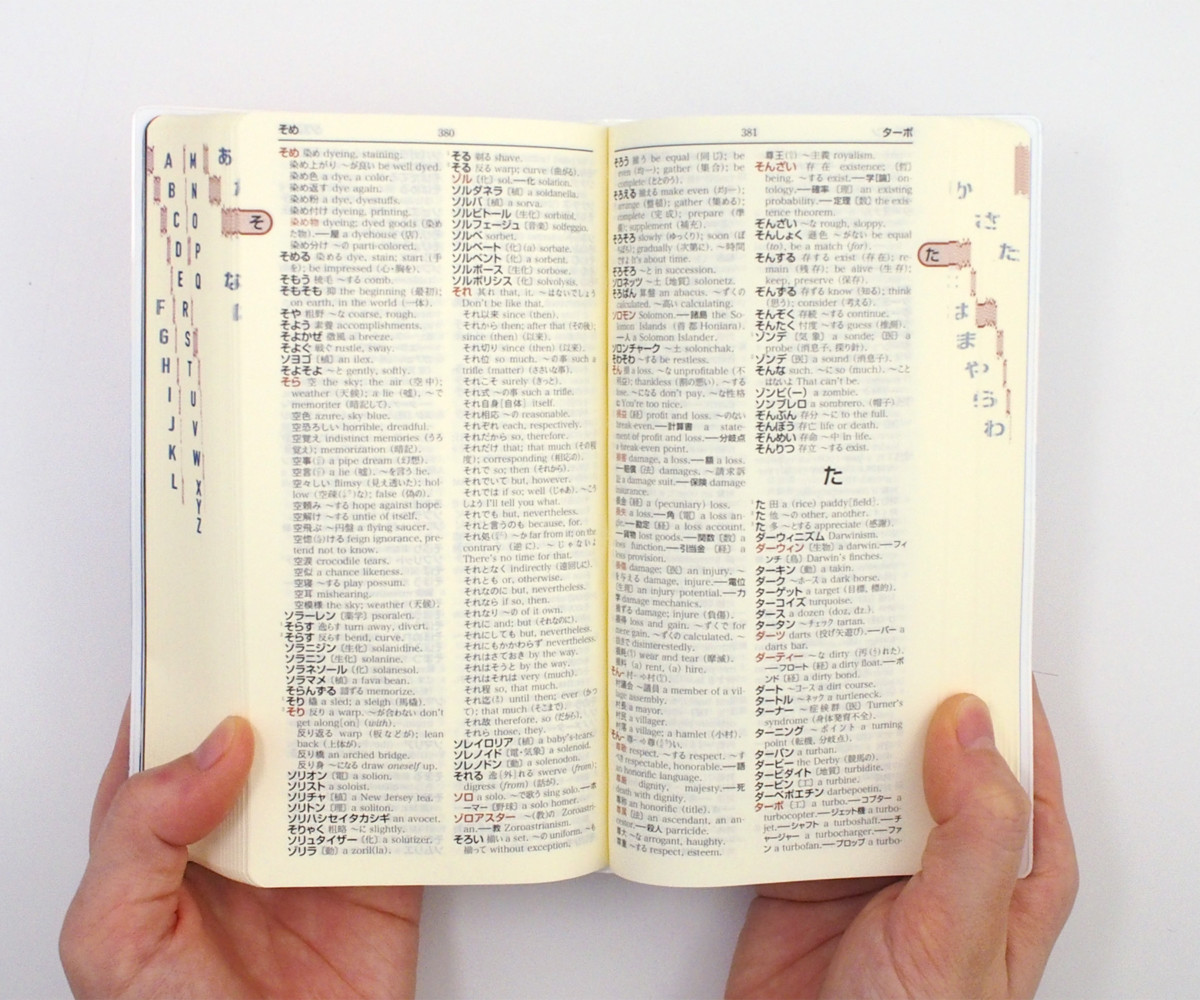 そめ
380
そめ 染め dyeing, staining.
染め上がり ～が良い be well dyed.
染め色 a dye, a color.
染め返す dye again.
染め粉 a dye, dyestuffs.
染め付け dyeing, printing.
染め物 dyeing; dyed goods (染め
た物).━屋 a dyehouse (店).
染め分け ～の parti-colored.
そめる 染める dye, stain; start (手
を); be impressed (心・胸を).
そもう 梳毛 ～する comb.
そもそも 抑 the beginning (最初);
on earth, in the world (一体).
そや 粗野 ～な coarse, rough.
そよう 素養 accomplishments.
そよかぜ 微風 a breeze.
そよぐ 戦ぐ rustle, sway.
ソヨゴ [植] an ilex.
そよそよ ～と gently, softly.
そら 空 the sky; the air (空中);
weather (天候); a lie (嘘). ～で
memoriter (暗記して).
空色 azure, sky blue.
空恐ろしい horrible, dreadful.
空覚え indistinct memories (うろ
覚え); memorization (暗記).
空事 a pipe dream (幻想).
空言 a lie (嘘). ～を言う lie.
空々しい flimsy (見え透いた); hol-
low (空疎な); false (偽の).
空頼み ～する hope against hope.
空解け ～する untie of itself.
空飛ぶ ～円盤 a flying saucer.
空惚ける feign ignorance, pre-
tend not to know.
空涙 crocodile tears.
空似 a chance likeness.
空寝 ～する play possum.
空耳 mishearing.
空模様 the sky; weather (天候).
ソラーレン [薬学] psoralen.
そらす 逸らす turn away, divert.
そらす 反らす bend, curve.
ソラニジン [生化] solanidine.
ソラニン [生化] solanine.
ソラネソール [化] solanesol.
ソラマメ [植] a fava bean.
そらんずる 諳ずる memorize.
そり 橇 a sled; a sleigh (馬橇).
そり 反り a warp. ～が合わない don't
get along[on] (with).
反り返る warp (板などが); lean
back (上体が).
反り橋 an arched bridge.
反り身 ～になる draw oneself up.
ソリオン [電] a solion.
ソリスト a soloist.
ソリチャ [植] a New Jersey tea.
ソリトン [理] a soliton.
ソリハシセイタカシギ an avocet.
そりゃく 粗略 ～に slightly.
ソリュタイザー [化] a solutizer.
ゾリラ [動] a zoril(la).
そる 剃る shave.
そる 反る warp; curve (曲がる).
ゾル [化] sol.━化 solation.
ソルダネラ [植] a soldanella.
ソルバ [植] a sorva.
ソルビトール [生化] sorbitol.
ソルフェージュ [音楽] solfeggio.
ソルベ sorbet.
ソルベート [化] (a) sorbate.
ソルベント [化] a sorbent.
ソルボース [生化] sorbose.
ソルボリシス [化] solvolysis.
それ 其れ that, it. ～はないでしょう
Don't be like that.
それ以来 since (then).
それから then; after that (その後);
since (then) (以来).
それ切り since (then) (以来).
それ位 so much. ～の事 such a
trifle (matter) (ささいな事).
それこそ surely (きっと).
それ式 ～の事 such a trifle.
それ自身[自体] itself.
それ相応 ～の reasonable.
それぞれ each, respectively.
それだから so, therefore.
それだけ that; that much (その程
度); corresponding (相応の).
それで so; then (それから).
それでいて but, however.
それでは if so; well (じゃあ). ～こう
しよう I'll tell you what.
それでも but, nevertheless.
それと言うのも because, for.
それ処 ～か far from it; on the
contrary (逆に). ～じゃないよ
There's no time for that.
それとなく indirectly (遠回しに).
それとも or, otherwise.
それなのに but, nevertheless.
それなら if so, then.
それなり ～の of it own.
それに and; but (それなのに).
それにしても but, nevertheless.
それにもかかわらず nevertheless.
それはさておき by the way.
それはそうと by the way.
それはそれは very (much).
それ程 so, that much.
それ迄 until then; ever (かつ
て); that much (そこまで).
それ故 therefore, so (だから).
それら those, they.
ソレイロリア [植] a baby's-tears.
ソレノイド [電・気象] a solenoid.
ソレノドン [動] a solenodon.
それる 逸[外]れる swerve (from);
digress (from) (話が).
ソロ a solo. ～で歌う sing solo.━ホ
ーマー [野球] a solo homer.
ゾロアスター ～(教)の Zoroastri-
an.━教 Zoroastrianism.
そろい 揃い a set. ～の uniform. ～も
揃って without exception.
381
ターボ
そろう 揃う be equal (同じ); be
even (均一); gather (集合); be
complete (ととのう).
そろえる 揃える make even (均一);
arrange (整頓); gather (集める);
complete (完成); prepare (準
備); supplement (補充).
そろそろ slowly (ゆっくり); soon (ぼ
つぼつ); gradually (次第に). ～時間
ですよ It's about time.
ぞろぞろ ～と in succession.
ソロネッツ ～土 [地質] solonetz.
そろばん 算盤 an abacus. ～ずくの
calculated. ～高い calculating.
ソロモン Solomon.━諸島 the So-
lomon Islands (首都 Honiara).
━人 a Solomon Islander.
ソロンチャーク ～土 solonchak.
そわそわ ～する be restless.
そん 損 a loss. ～な unprofitable (不
利益); thankless (割の悪い). ～する
lose. ～になる don't pay. ～な性格
だ You're too nice.
損益 [経] profit and loss. ～のない
break-even.━計算書 a state-
ment of profit and loss.━分岐点
a break-even point.
損害 damage, a loss.━額 a loss.
━賠償 [法] damages. ～請求訴
訟 a damage suit.━保険 damage
insurance.
損金 [経] a (pecuniary) loss.
損失 a loss.━角 [電] a loss an-
gle.━勘定 [経] a loss account.
━貨物 lost goods.━関数 [数] a
loss function.━引当金 [経] a
loss provision.
損傷 damage; [医] an injury. ～
を与える damage, injure.━電位
[生理] an injury potential.━力
学 damage mechanics.
損ずる damage; injure (負傷).
損得 loss and gain. ～ずくで for
mere gain. ～ずくの calculated. ～
抜きで disinterestedly.
損耗 wear and tear (摩滅).
損料 (a) rent, (a) hire.
そん- 村-
村議会 ～議員 a member of a vil-
lage assembly.
村長 a mayor.
村民 a villager.
村落 a village; a hamlet (小村).
そん- 尊-
尊敬 respect. ～する respect. ～す
べき respectable, honorable.━語
an honorific language.
尊厳 dignity, majesty.━死
death with dignity.
尊称 an honorific (title).
尊属 [法] an ascendant, an an-
cestor.━殺人 parricide.
尊大 ～な arrogant, haughty.
尊重 ～する respect, esteem.
尊王 ～主義 royalism.
そんざい 存在 existence; [哲]
being. ～する exist.━学[論] on-
tology.━確率 [理] an existing
probability.━定理 [数] the exis-
tence theorem.
ぞんざい ～な rough, sloppy.
そんしょく 遜色 ～がない be equal
(to), be a match (for).
そんする 存する exist (存在); re-
main (残存); be alive (生存);
keep, preserve (保存).
ぞんずる 存ずる know (知る); think
(思う); consider (考える).
そんぞく 存続 ～する continue.
そんたく 忖度 ～する guess (推測).
ゾンデ [気象] a sonde; [医] a
probe (消息子, 探り針).
ゾンデ [医] a sound (消息子).
そんな such. ～に so (much). ～こと
はないよ That can't be.
ゾンビ(ー) a zombie.
ソンブレロ a sombrero. (帽子)
ぞんぶん 存分 ～に to the full.
そんぼう 存亡 life or death.
ぞんめい 存命 ～中 in life.
そんりつ 存立 ～する exist.
た
た 田 a (rice) paddy[field].
た 他 ～の other, another.
た 多 ～とする appreciate (感謝).
ダーウィニズム Darwinism.
ダーウィン [生物] a darwin.━フィ
ンチ [鳥] Darwin's finches.
ターキン [動] a takin.
ダーク ～ホース a dark horse.
ターゲット a target (目標, 標的).
ターコイズ turquoise.
ダース a dozen (doz, dz.).
タータン ～チェック tartan.
ダーツ darts (投げ矢遊び).━バー a
darts bar.
ダーティー ～な dirty (汚れた).
━フロート [経] a dirty float.━ボ
ンド [経] a dirty bond.
ダート ～コース a dirt course.
タートル ～ネック a turtleneck.
ターナー ～症候群 [医] Turner's
syndrome (身体発育不全).
ターニング ～ポイント a turning
point (転機, 分岐点).
ターバン a turban.
ダービー the Derby (競馬の).
タービダイト [地質] turbidite.
タービン [工] a turbine.
ダーベポエチン darbepoetin.
ターボ [工] a turbo.━コプター a
turbocopter.━ジェット機 a turbo-
jet.━シャフト a turboshaft.━チ
ャージャー a turbocharger.━ファ
ン a turbofan.━プロップ a turbo-
A
B
C
D
E
F
G
H
I
J
K
L
M
N
O
P
Q
R
S
T
U
V
W
X
Y
Z
あ
そ
な
か
さ
た
た
は
ま
や
ら
わ